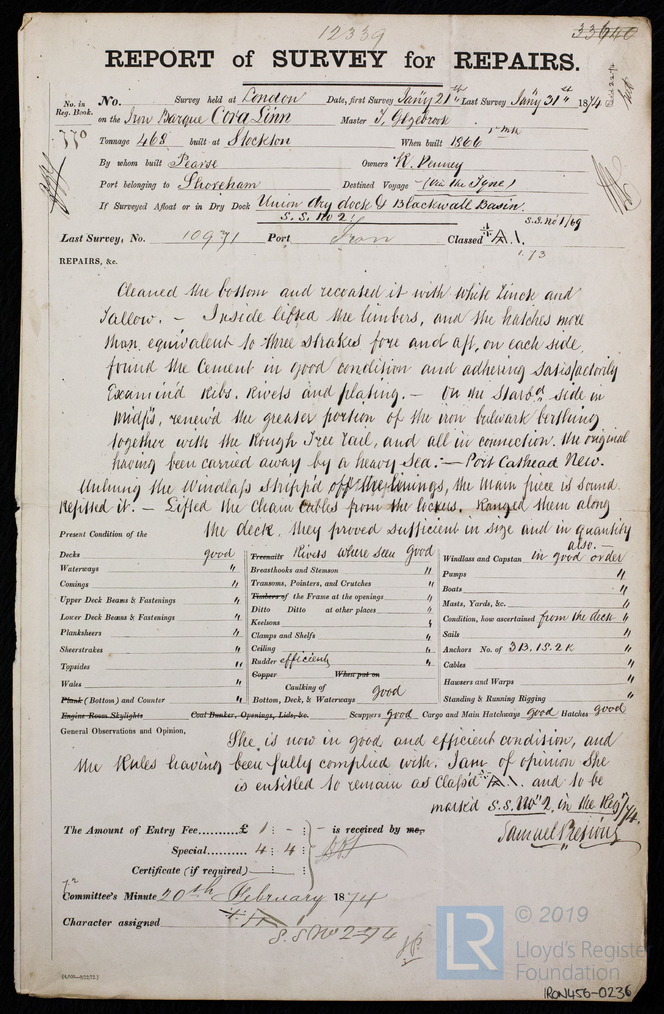 12339
33640
REPORT of SURVEY for REPAIRS.
No. in Reg. Book. No. Survey held at London Date, first Survey Jany 21st Last Survey Jany 31st 1874
770 on the Iron Barque Cora Linn Master T. Glazebrook
Tonnage 468 built at Stockton When built 1866
By whom built Pearse Owners R. Penney
Port belonging to Shoreham Destined Voyage (Via the Tyne)
If Surveyed Afloat or in Dry Dock Union dry dock & Blackwall Basin.
S.S. No 2 S.S. No 1/69
Last Survey, No. 10971 Port Iron Classed A.1.
1.73
REPAIRS, &c.
Cleaned the bottom and recoated it with White Zinck and
Tallow. — Inside lifted the limbers, and the hatches more
than equivalent to three strakes fore and aft, on each side,
found the Cement in good condition and adhering satisfactorily
Examined Ribs, Rivets and plating. — On the Starbd side in
Midp's, renew'd the greater portion of the iron bulwark berthing
together with the Rough Tree rail, and all in connection. the original
having been carried away by a heavy Sea. — Port Cathead New.
Unhung the Windlass stripp'd off the linings, the Main piece is sound
Refitted it. — Lifted the Chain Cables from the lockers. Ranged them along
the deck, they proved sufficient in size and in quantity
also. —
Present Condition of the
Decks good
Waterways "
Comings "
Upper Deck Beams & Fastenings "
Lower Deck Beams & Fastenings "
Planksheers "
Sheerstrakes "
Topsides "
Wales "
Plank (Bottom) and Counter "
Engine Room Skylights
Treenails Rivets where seen good
Breasthooks and Stemson "
Transoms, Pointers, and Crutches "
Timbers of the Frame at the openings "
Ditto Ditto at other places "
Keelsons "
Clamps and Shelfs "
Ceiling "
Rudder efficient "
Copper When put on
Caulking of
Bottom, Deck, & Waterways good
Coal Bunker, Openings, Lids, &c.
Windlass and Capstan in good order
Pumps "
Boats "
Masts, Yards, &c. "
Condition, how ascertained from the deck "
Sails "
Anchors No. of 3B. 1S. 2K "
Cables "
Hawsers and Warps "
Standing & Running Rigging "
Scuppers good Cargo and Main Hatchways good Hatches good
General Observations and Opinion,
She is now in good and efficient condition, and
the Rules having been fully complied with. I am of opinion She
is entitled to remain as Class'd A.1. and to be
mark'd S.S. No 2 in the Regr
The Amount of Entry Fee.......... £ 1 : - : - is received by me,
Special.......... 4 : 4 :
Certificate (if required) : :
Committee's Minute 20th February 1874
Character assigned
S.S No 2-74
LR © 2019
Lloyd's Register
Foundation
IRON456-0236